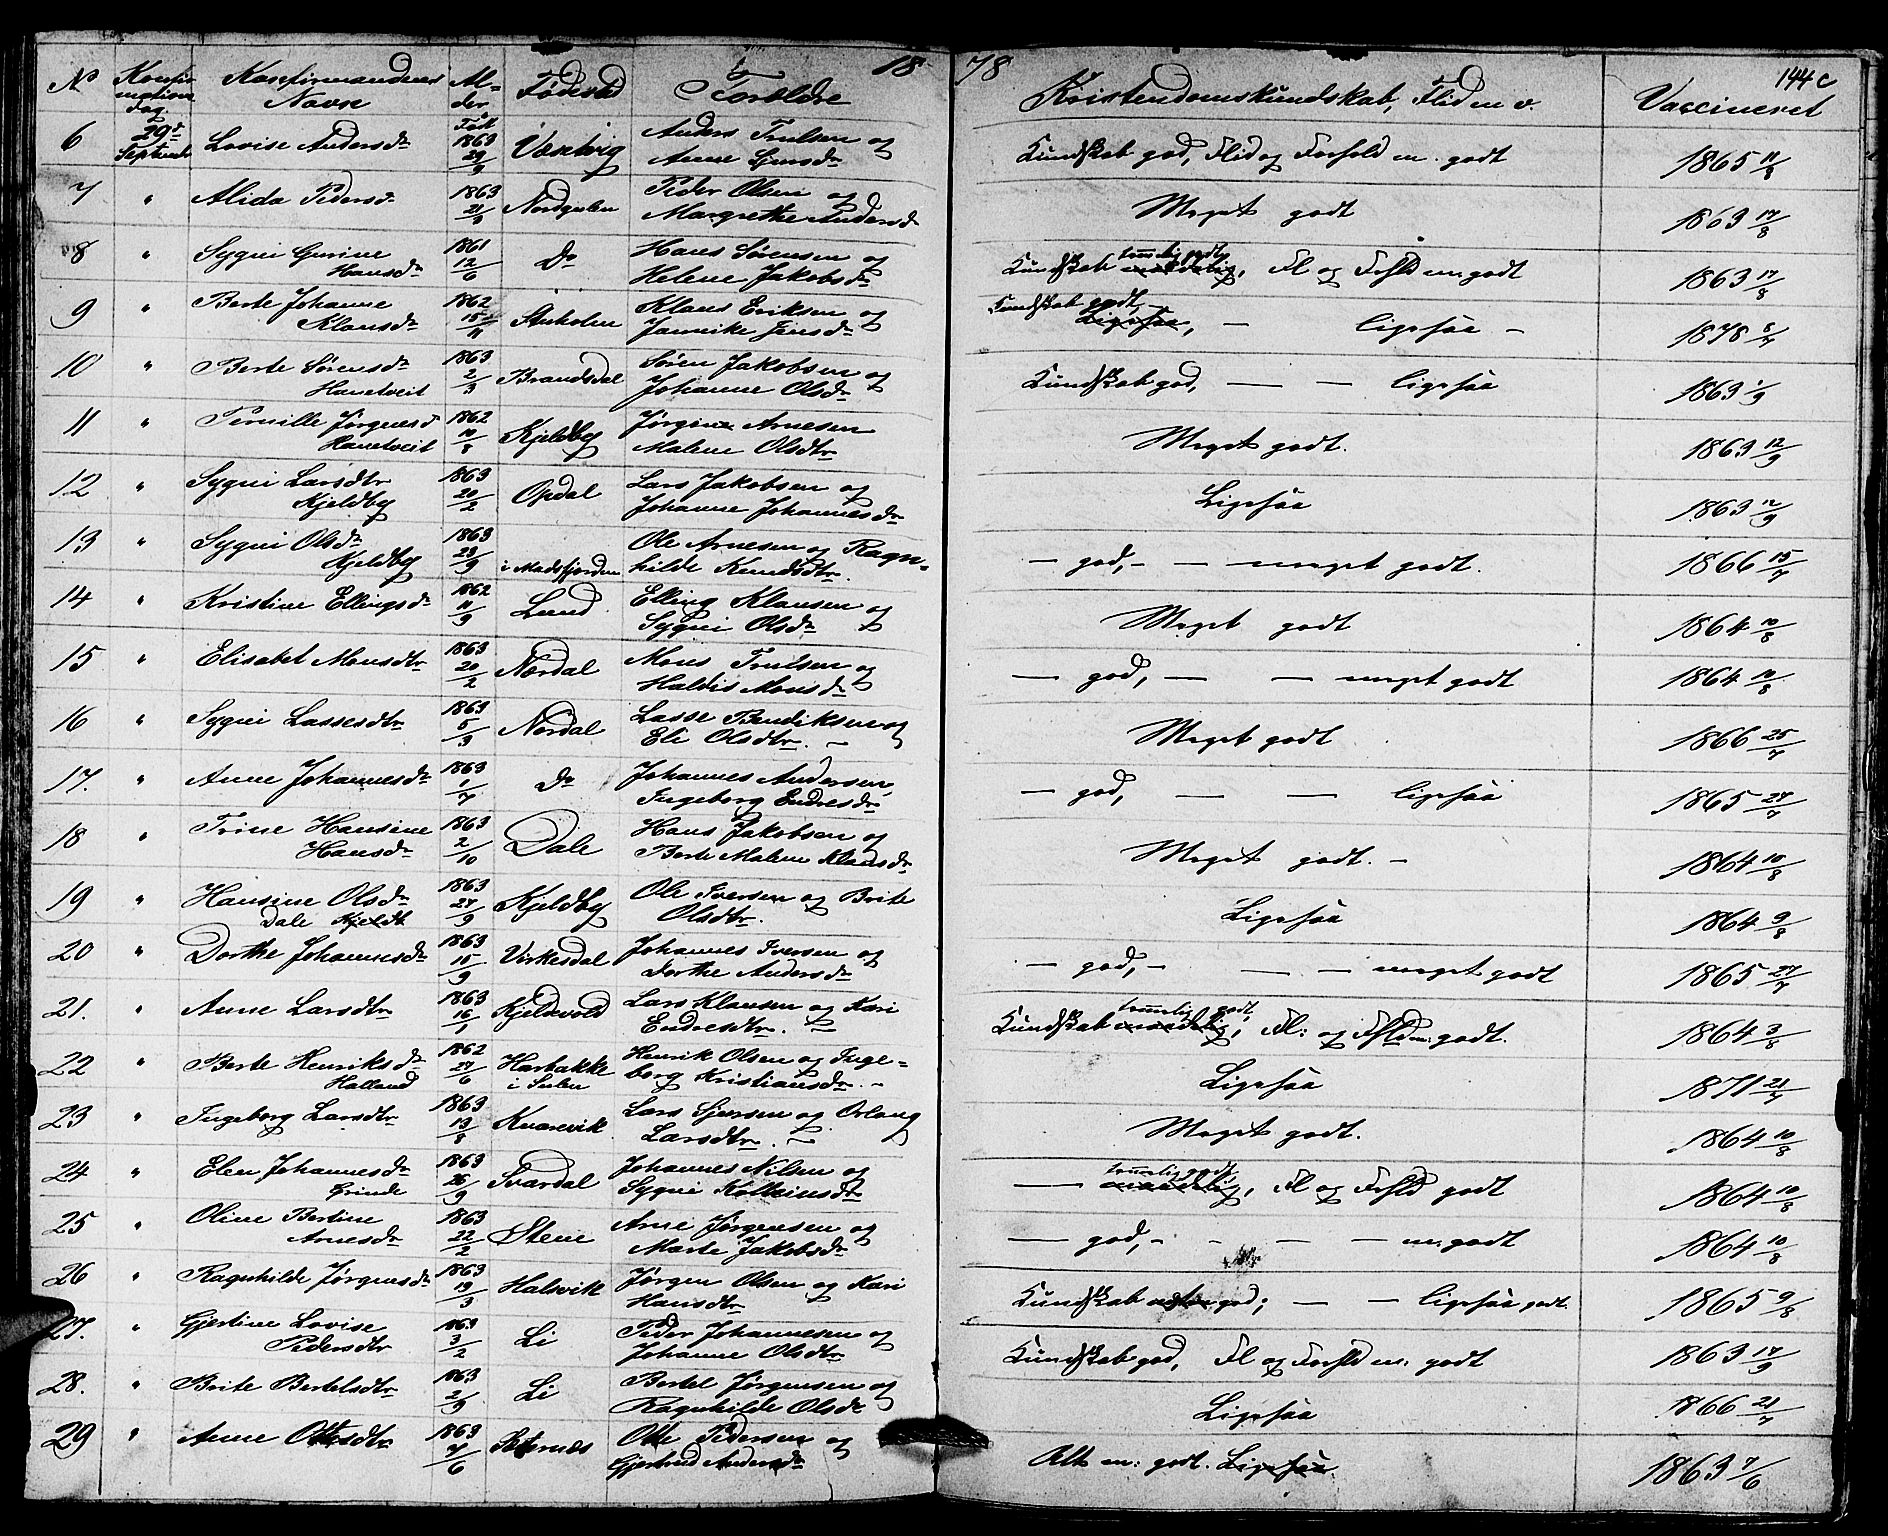 18 78
144 c
No Konfirmations Dag Konfirmandernes Navne Alder Fødested Forældre Kristendomskundskab, Flid m. v. Vaccineret
6 29d September Lovise Andersdr Født 1863 29/9 Væntvig Anders Trulsen og Anne Gjersdr Kundskab god, Flid og Forhold m. godt 1865 11/8
7 " Alida Pedersdr 1863 21/9 Nordgulen Peder Olsen og Margrethe Andersdr Meget godt 1863 17/8
8 " Sygni Gurine Hansdr 1861 12/6 Do Hans Sørensen og Helene Jakobsdr Kundskab maadelig, temmelig godt, Fl og Forhld m: godt 1863 17/8
9 " Berte Johanne Klausdr 1862 15/4 Klaus Eriksen og Jannike Jensdr Kundskab godt, Ligesaa, – ligesaa – 1878 8/7
10 " Berte Sørensdr Hanetveit 1863 2/3 Brandsdal Søren Jakobsen og Johanne Olsdr Kundskab god, — — ligesaa 1863 1/9
11 " Pernille Jørgensdr Hanetveit 1862 10/8 Kjeldby Jørgen Arnesen Malene Olsdtr Meget godt. 1863 12/9
12 " Sygni Larsdtr Kjeldby 1863 20/2 Opdal Lars Jakobsen og Johanne Johannesdr Ligesaa 1863 12/9
13 " Sygni Olsdr Kjeldby 1863 23/9 i Madsfjorden Ole Arnesen og Ragnhilde Knudsdtr. – god, – – meget godt. 1866 15/7
14 " Kristine Ellingsdr 1862 11/9 Lund Elling Klausen og Sygni Olsdr Meget godt 1864 10/8
15 " Elisabet Monsdtr 1863 20/2 Nordal Mons Trulsen og Haldis Monsdr — god, — — meget godt 1864 10/8
16 " Sygni Lassesdtr 1863 5/3 Nordal Lasse Bendiksen og Eli Olsdtr. – Meget godt 1866 25/7
17. " Anne Johannesdr 1863 1/7 Do Johannes Andersen, Ingeborg Endresdr – god, — — ligesaa 1865 27/7
18 " Trine Hansine Hansdr 1863 2/10 Dale Hans Jakobsen og Berte Malene Klausdr Meget godt. – 1864 10/8
19 " Hansine Olsdr Dale Kjeldt 1863 27/9 Kjeldby Ole Iversen og Brite Olsdtr. Ligesaa 1864 9/8
20 " Dorthe Johannesdr 1863 15/9 Virkesdal Johannes Iversen og Dorthe Andersdr – god, – — – meget godt 1865 27/7
21. " Anne Larsdtr 1863 16/1 Kjeldevold Lars Klausen og Kari Endresdtr. – Kundskab maadelig, temmelig godt, Fl: og Fhld m: godt. 1864 3/8
22 " Berte Henriksdr Halland 1862 27/6 Harbakke i Sulen Henrik Olsen og Ingeborg Kristiansdr. – Ligesaa 1871 21/7
23 " Ingeborg Larsdtr 1863 13/8 Kvarevik Lars Sjursen og Orlaug Larsdtr. – Meget godt. 1864 10/8
24 " Elen Johannesdr Grinde 1863 26/9 Svardal Johannes Nilsen og Sygni Kolbeinsdtr — maadelig, temmelig godt, Fl og Forhld godt 1864 10/8
25 " Oline Bertine Arnesdr 1863 22/2 Stene Arne Jørgensen og Marte Jakobsdr — god, – – — – m: godt 1864 10/8
26 " Ragnhilde Jørgensdr 1863 19/3 Halsvik Jørgen Olsen og Kari Hansdtr Kundskab god; — — ligesaa godt. 1865 9/8
27. " Gjertine Lovise Pedersdtr 1863 3/2 Li Peder Johannesen og Johanne Olsdtr Kundskab god, Fl og Forhld m: godt 1863 17/9
28. " Brite Bertelsdtr 1863 2/9 Li Bertel Jørgensen og Ragnhilde Olsdr Ligesaa 1866 21/7
29 " Anne Ottesdtr 1863 7/6 Otte Pedersen og Gjertrud Andersdr Alt m: godt. Ligesaa. 1863 7/6